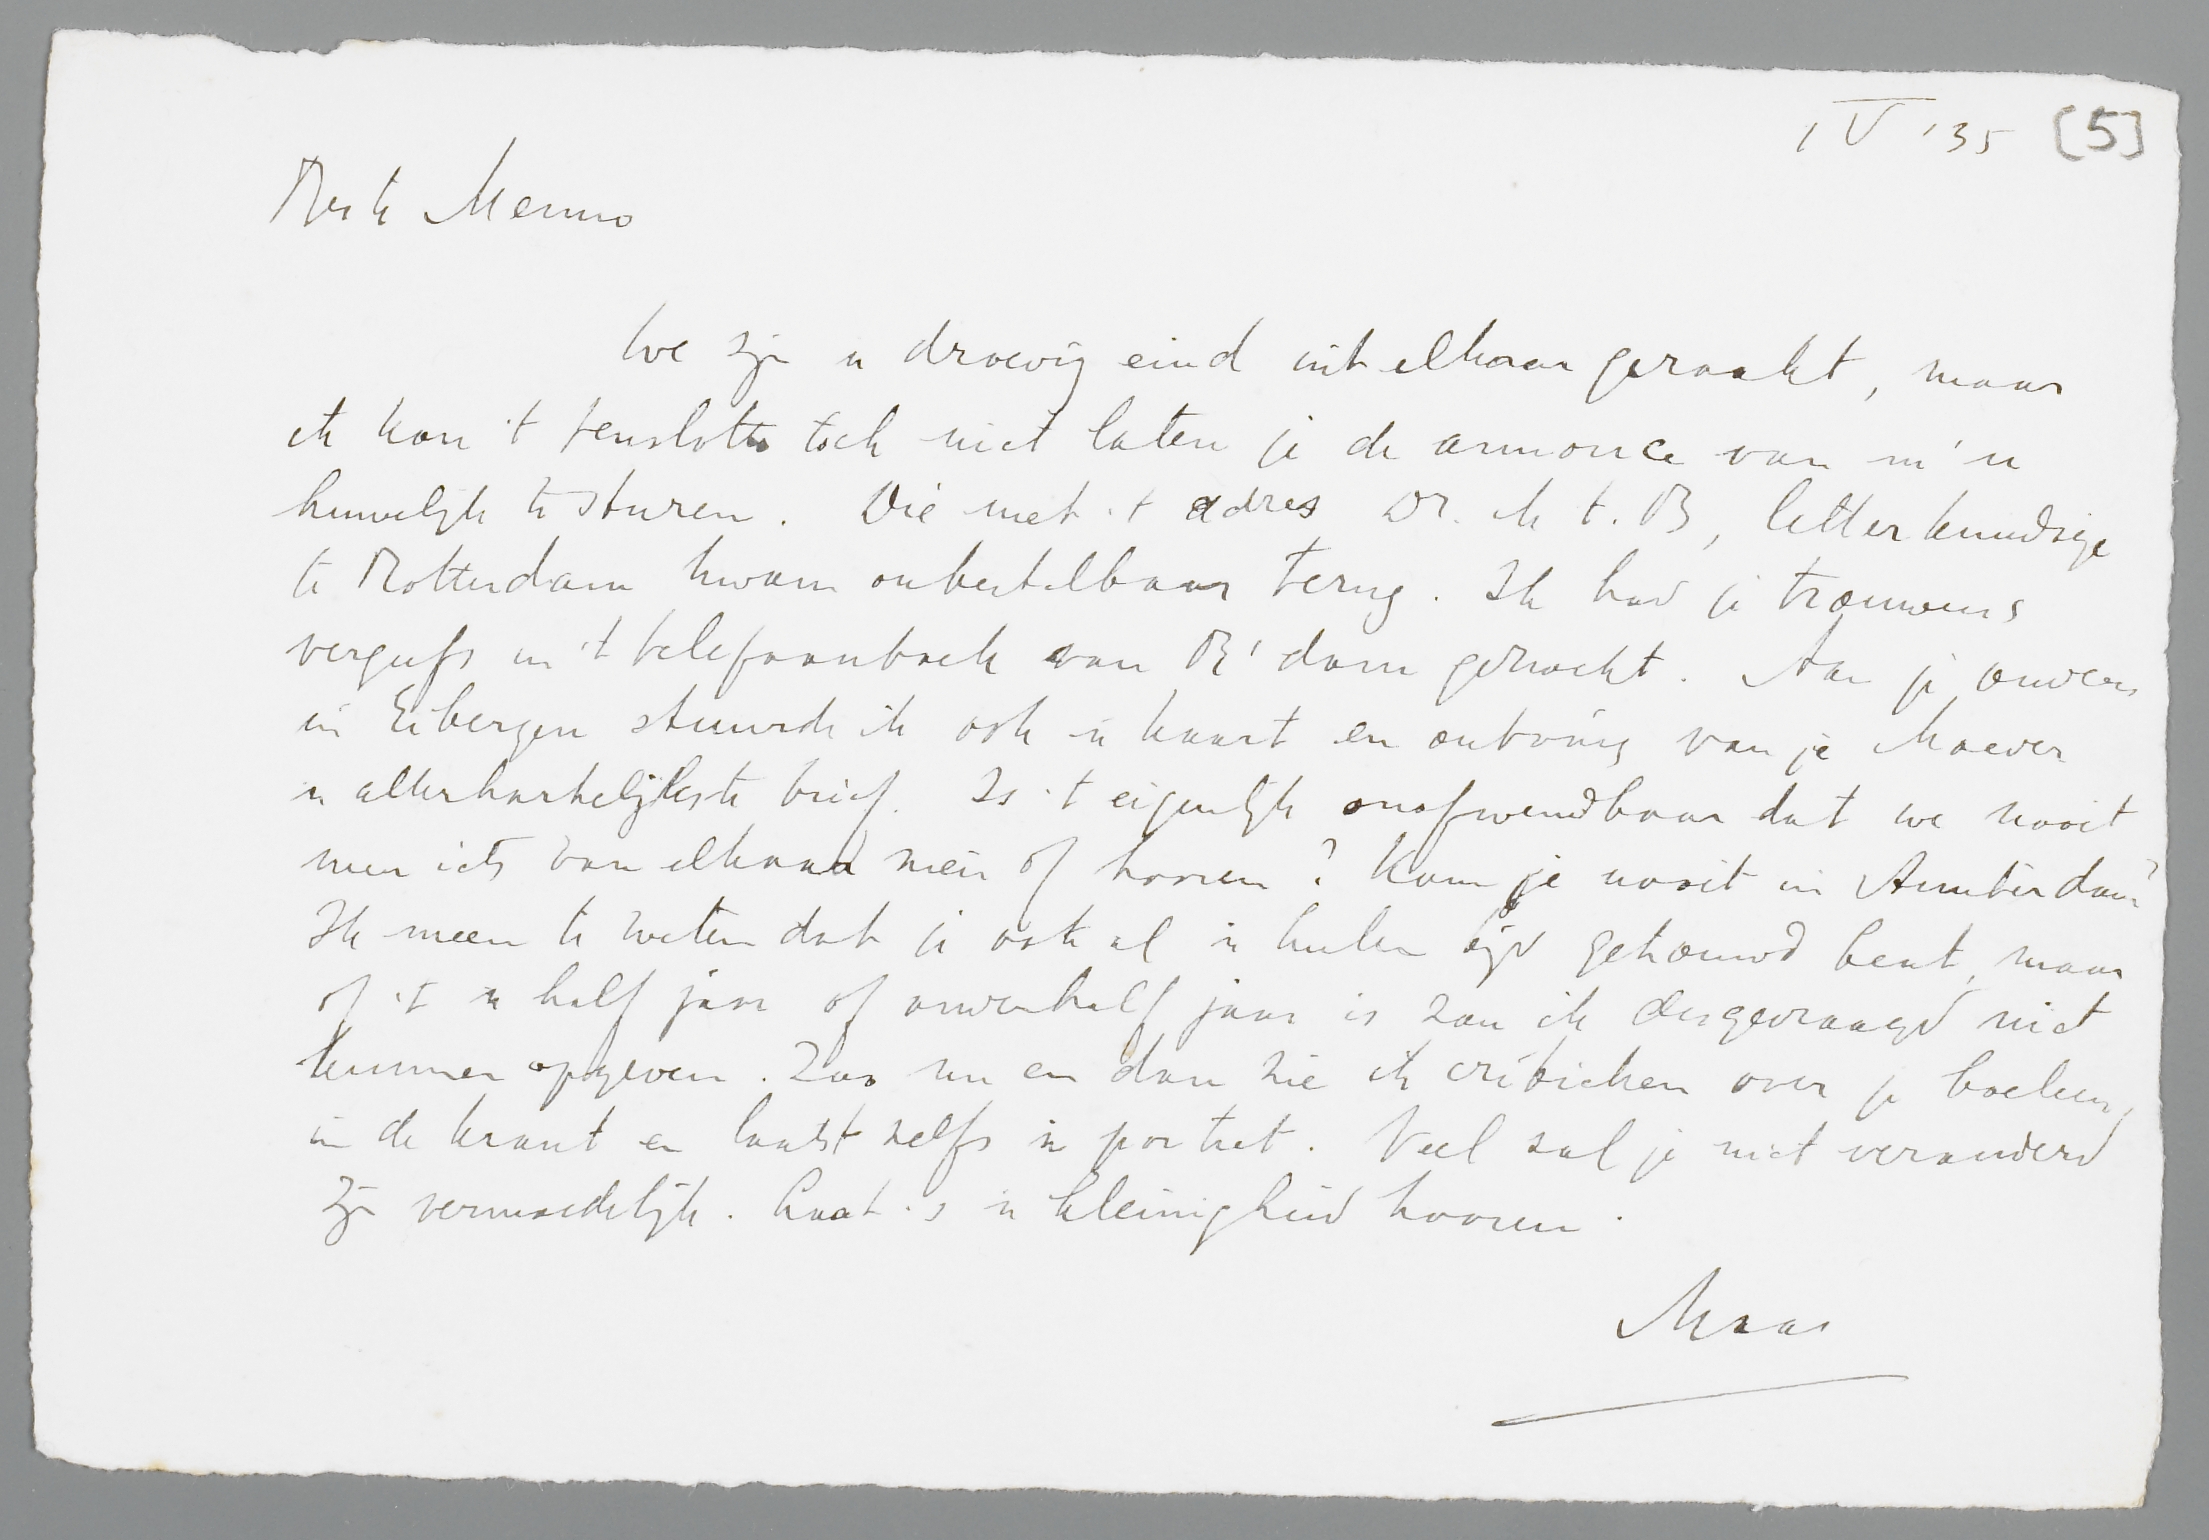 IV '35 [5]
Beste Menno
We zijn 'n droevig eind uit elkaar geraakt, maar
ik kon 't tenslotte toch niet laten je de annonce van m'n
huwelijk te sturen. Die met 't adres Dr. M t. B, letterkundige
te Rotterdam kwam onbestelbaar terug. Ik had je trouwens
vergeefs in 't telefoonboek van R'dam gezocht. Aan je ouders
in Eibergen stuurde ik ook 'n kaart en ontving van je Moeder
'n allerhartelijkste brief. Is 't eigenlijk onafwendbaar dat we nooit
meer iets van elkaar zien of hooren? Kom je nooit in Amsterdam?
Ik meen te weten dat je ook al 'n heelen tijd getrouwd bent, maar
of 't 'n half jaar of anderhalf jaar is zou ik desgevraagd niet
kunnen opgeven. Zoo nu en dan zie ik critieken over je boeken,
in de krant en laatst zelfs 'n portret. Veel zal je niet veranderd
zijn vermoedelijk. Laat 's 'n kleinigheid hooren.
Maas